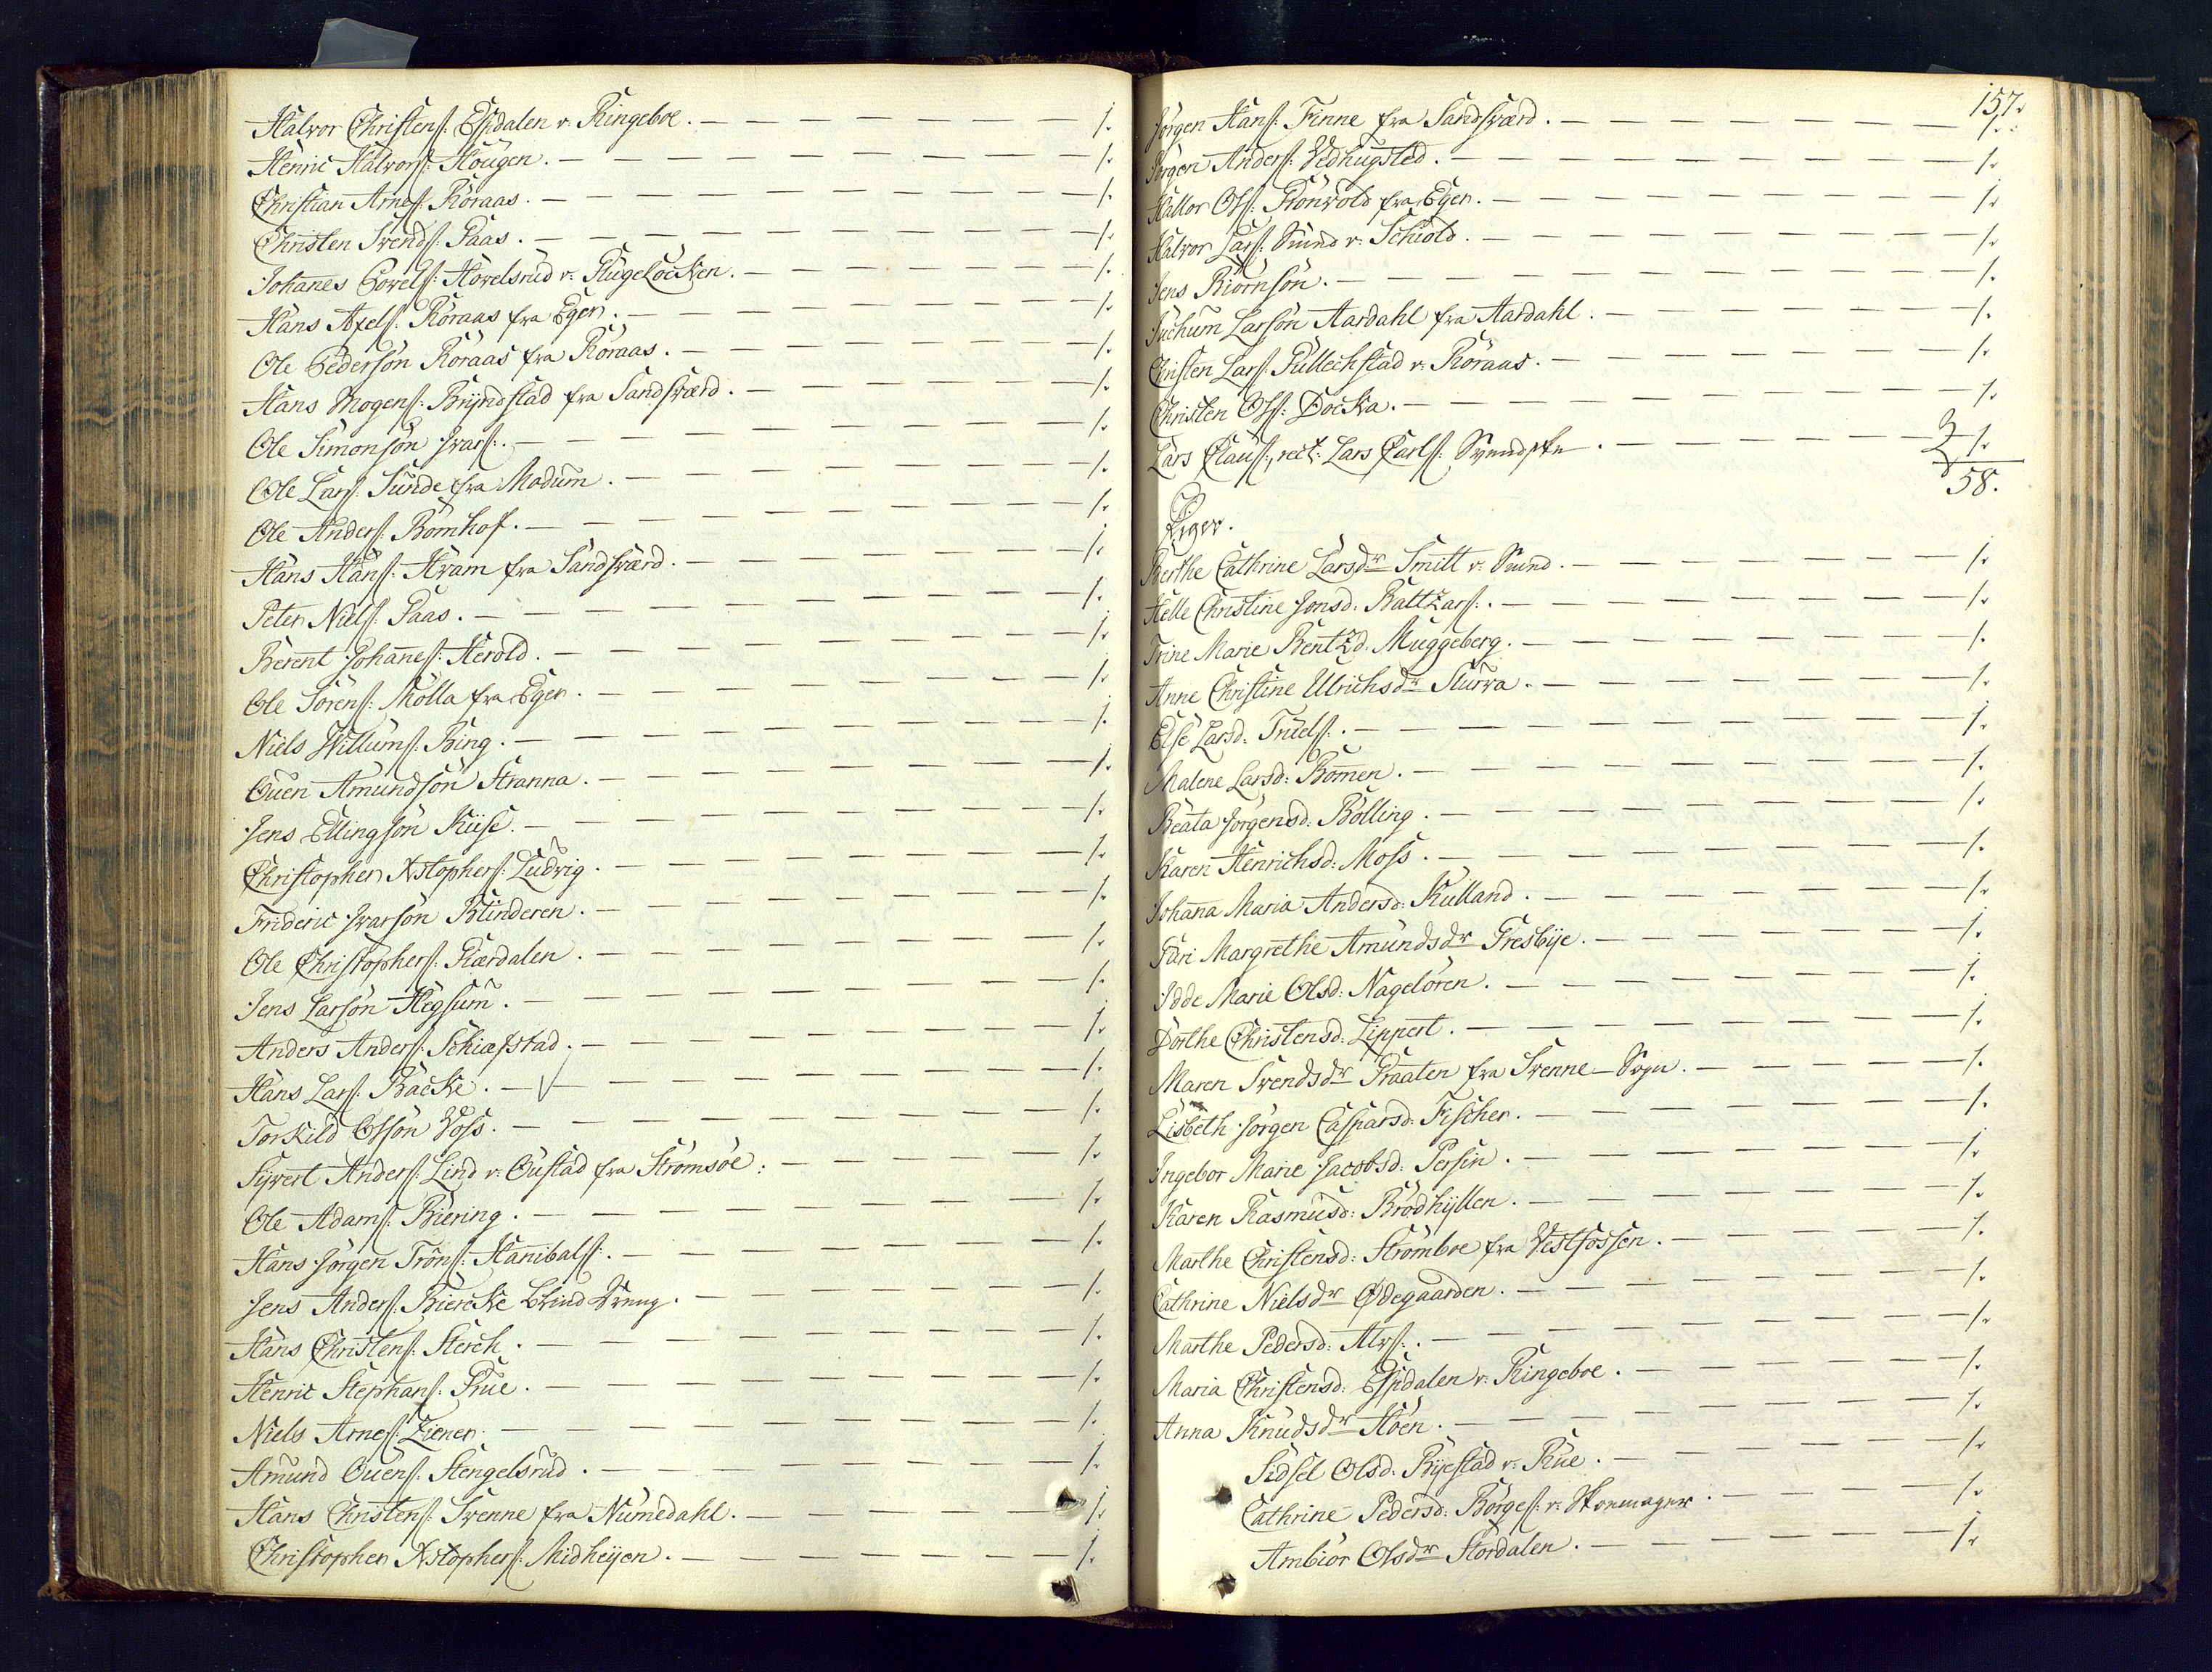 Halvor Christens: Espdalen v. Ringeboe. — 1.
Henric Halvors: Hougen. — 1.
Christian Arnes: Röraas. — 1.
Christen Svends: Paas. — 1.
Johanes Povels: Hovelsrud v. — 1.
Hans Axels: Röraas fra Eger. — 1.
Ole Pedersön Röraas fra Röraas. — 1.
Hans Mogens: Bryndstad fra Sandsværd. — 1.
Ole Simonsön Ivars: — 1.
Ole Lars: Sunde fra Modum. — 1.
Ole Anders: Bomhof. — 1.
Hans Hans: Hvam fra Sandsværd. — 1.
Peter Niels: Paas. — 1.
Berent Johanes: Herold. — 1.
Ole Sörens: Mölla fra Eger. — 1.
Niels Willums: Bing. — 1.
Ouen Amundsön Stranna. — 1.
Jens Ellingsön Kiise. — 1.
Christopher Xstophers: Ludvig. — 1.
Frideric Ivarsön Blinderen. — 1.
Ole Christophers: — 1.
Jens Larsön Hegsum. — 1.
Anders Anders: Schiæfstad. — 1.
Hans Lars: Backe. — 1.
Torkild Olsön Voss. — 1.
Sÿvert Anders: Lind v. Oustad fra Strömsöe: — 1.
Ole Adams: Biering. — 1.
Hans Jörgen Tröns: Hanibals: — 1.
Jens Anders: Biercke blind Dreng. — 1.
Hans Christens: Sterch. — 1.
Henric Stephans: Prue. — 1.
Niels Arnes: Ziener. — 1.
Amund Ouens: Stengelsrud. — 1.
Hans Christens: Svenne fra Numedahl. — 1.
Christopher Xstophers: Midheÿen. — 1.
157.
Jörgen Hans: Finne fra Sandsværd. — 1.
Jörgen Anders: Vedhugsted. — 1.
Hallor Ols: Rönvold fra Eger. — 1.
Halvor Lars: Smed v. Schiold. — 1.
Jens Biörnsön. — 1.
Jochum Larsön Aardahl fra Aardahl. — 1.
Christen Lars: Pullechstad v. Röraas. — 1.
Christen Ols: Docka. — 1.
Lars Claus:, rect: Lars Carls: — 1.
58.
Piger.
Berthe Cathrine Larsdr Smitt v. Smed. — 1.
Helle Christine Jonsd: Baltzars: — 1.
Trine Marie Bentzd: Muggeberg. — 1.
Anne Christine Ulrichsdr Skurra. — 1.
Else Larsd: Truels: — 1.
Malene Larsd: Bommen. — 1.
Beata Jörgensd: Bölling. — 1.
Karen Henrichsd: Moss. — 1.
Johana Maria Andersd: Kulland. — 1.
Kari Margrethe Amundsdr Fresbÿe. — 1.
Idde Marie Olsd: Nagelören. — 1.
Dorthe Christensd: Lippert. — 1.
Maren Svendsdr Praaten fra Svenne-Sogn. — 1.
Lisbeth Jörgen Caspersd: Fischer. — 1.
Ingebor Marie Jacobsd: Persin. — 1.
Karen Rasmusd: Brödhÿllen. — 1.
Marthe Christensd: Strömboe fra Vestfossen. — 1.
Cathrine Nielsdr Ødegaarden. — 1.
Marthe Pedersd: Alvs: — 1.
Maria Christensd: Espdalen v. Ringeboe. — 1.
Anna Knudsdr Hoen. — 1.
Sidsel Olsd: Bÿestad v. Rue. — 1.
Cathrine Pedersd: Börges: v. Skoemager. — 1.
Ambiör Olsdr Stordalen. — 1.